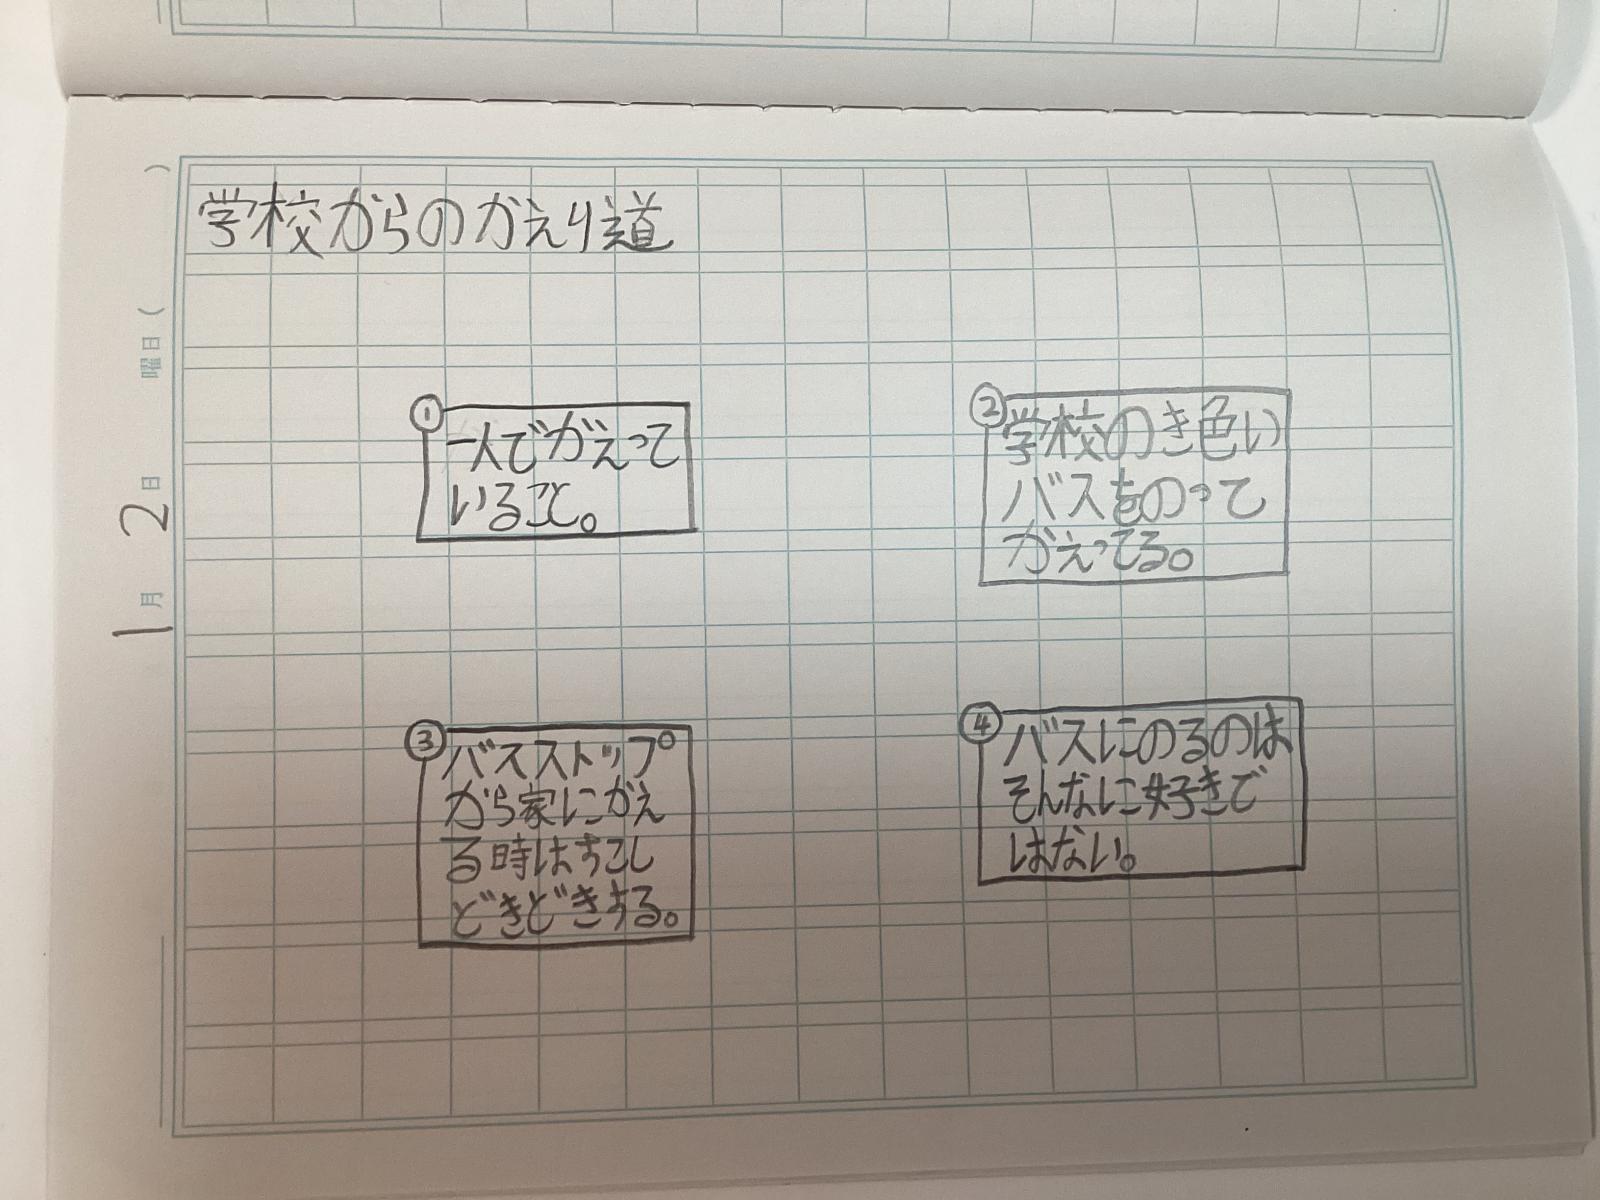 学校からのかえり道
①
一人でかえって
いること。
②
学校のき色い
バスをのって
かえってる。
③
バスストップ
から家にかえ
る時はすこし
どきどきする。
④
バスにのるのは
そんなに好きで
はない。
1月2日
曜日( )